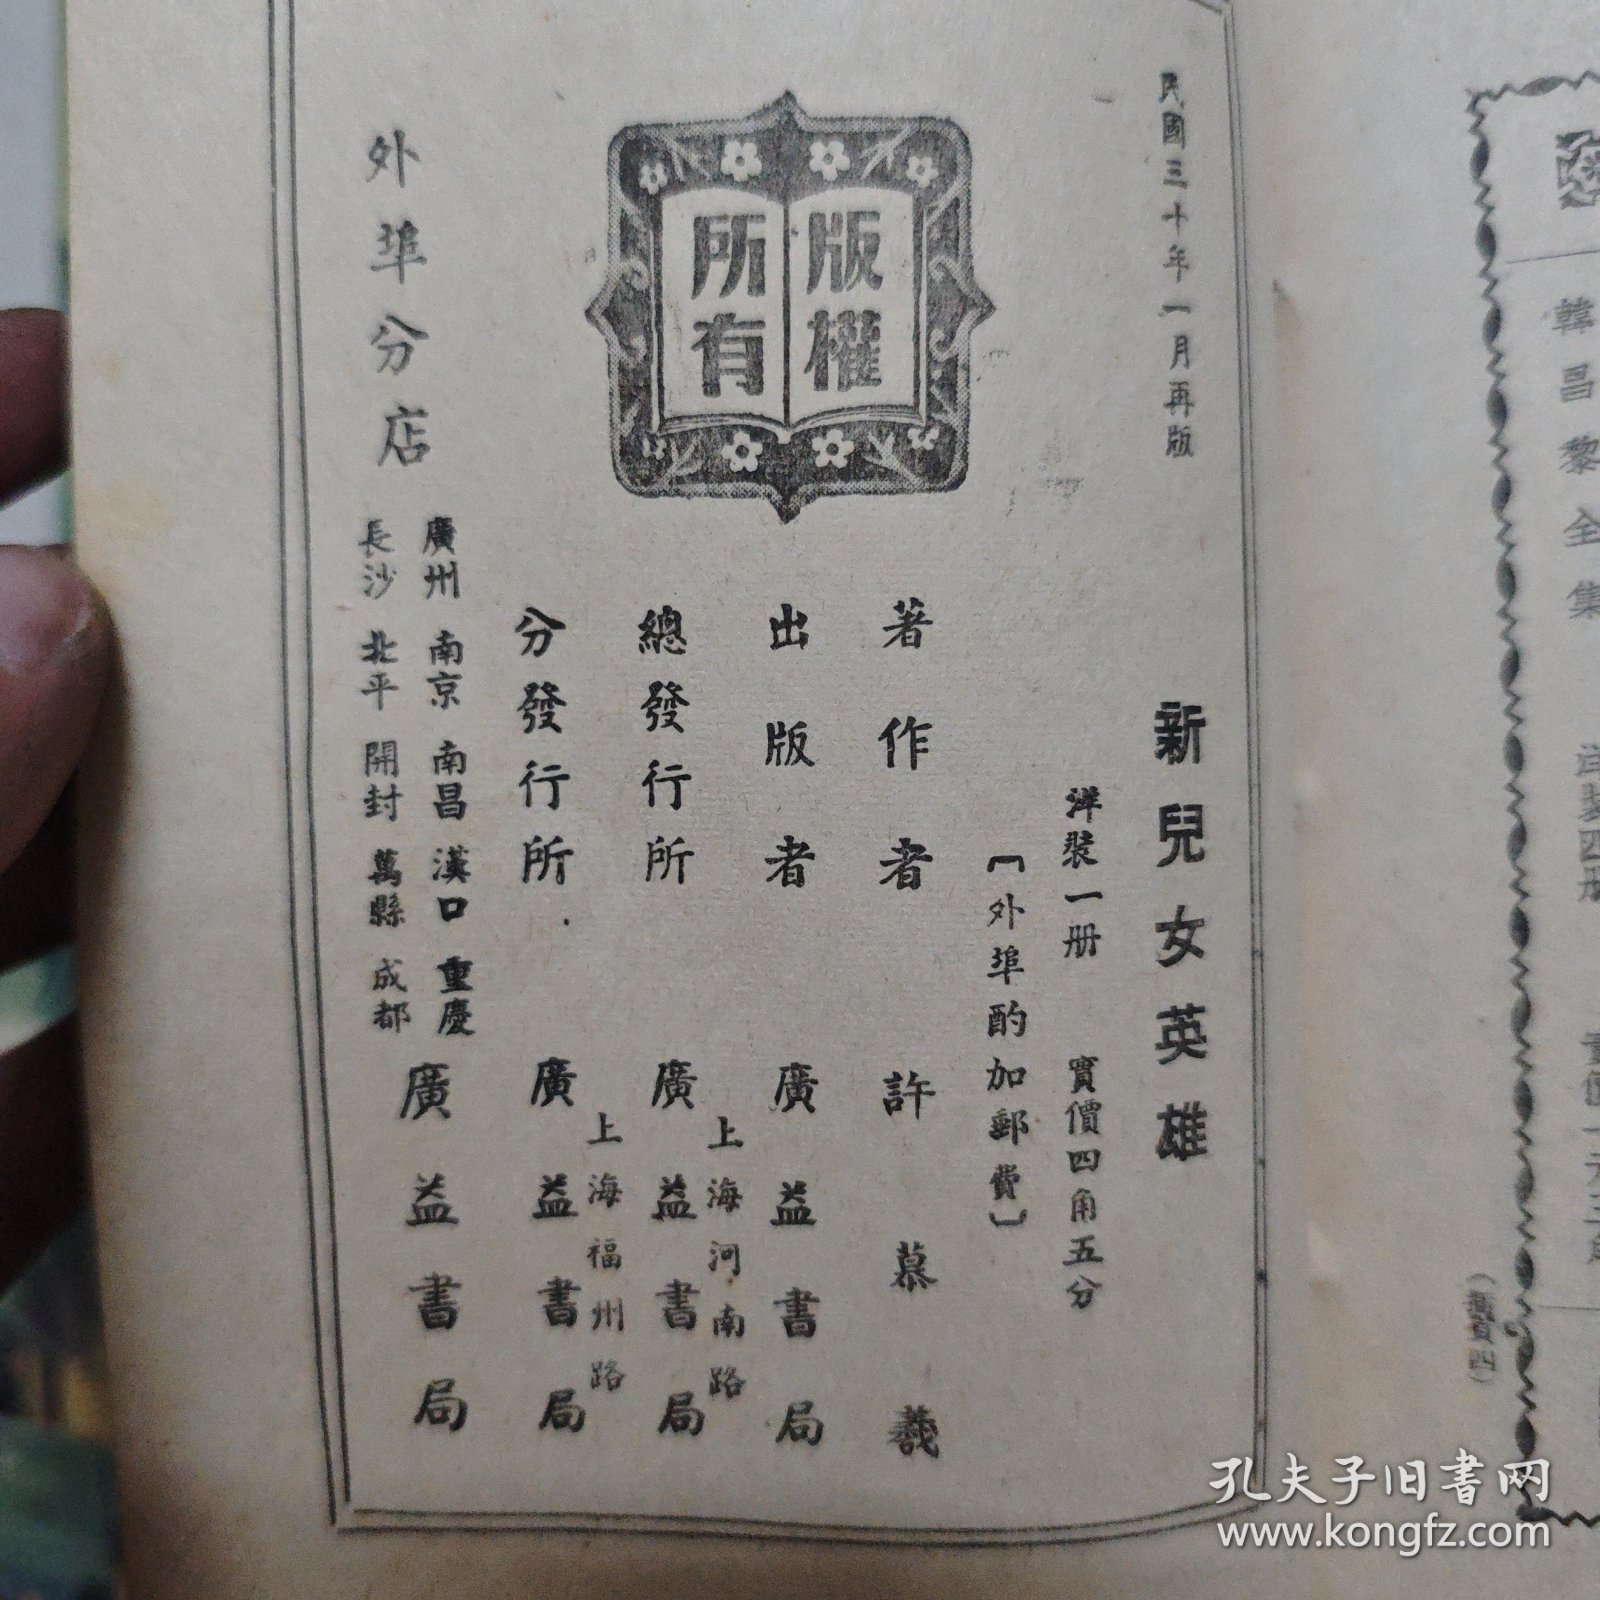 民國三十年一月再版
版權
所有
新兒女英雄
洋裝一册 實價四角五分
〔外埠酌加郵費〕
著作者 許慕羲
出版者 廣益書局
總發行所 上海河南路 廣益書局
分發行所 上海福州路 廣益書局
外埠分店
廣州 南京 南昌 漢口 重慶
長沙 北平 開封 萬縣 成都
廣益書局
韓昌黎全集
洋裝四册
孔夫子旧书网
www.kongfz.com